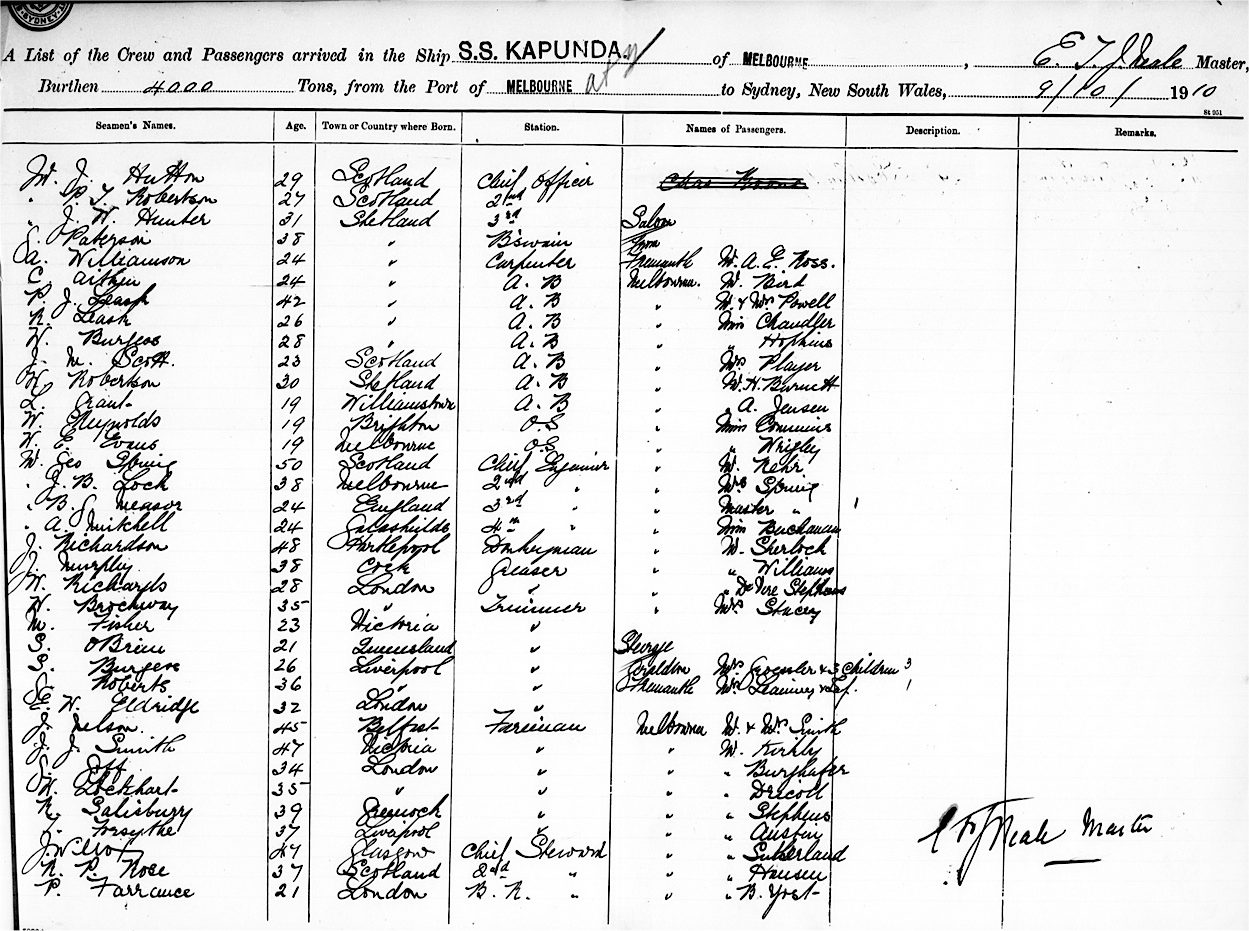 SYDNEY
A List of the Crew and Passengers arrived in the Ship S.S. KAPUNDA of MELBOURNE, E. T. J. Neale Master,
Burthen 4000 Tons, from the Port of MELBOURNE to Sydney, New South Wales, 9/10/ 1910
St 951
Seamen's Names. Age. Town or Country where Born. Station. Names of Passengers. Description. Remarks.
W. J. Hutton 29 Scotland Chief Officer
" P. J. Robertson 27 Scotland 2nd
" J. W. Hunter 31 Shetland 3rd Saloon
Paterson 38 " B'swain from
A. Williamson 24 " Carpenter Fremantle W. A. E. Ross.
C. Aitkin 24 " A. B Melbourne. W. Baird
P. J. Leask 42 " A. B " W. & Mrs Powell
R. Leask 26 " A. B " Miss Chandler
W. Burgess 28 " A. B " " Hopkins
J. M. Scott. 23 Scotland A. B " Mrs Player
W. Robertson 30 Shetland A. B " W. H. Burnett
L. Grant 19 Williamstown A. B " " A. Jensen
W. Reynolds 19 Brighton O.S " Miss Commins
W. E. Evans 19 Melbourne O.S. " " Wrigley
W. Geo Spring 50 Scotland Chief Engineer " W. Kehr
" J. B. Lock 38 Melbourne 2nd " " Mrs Spring
" B. G. Measor 24 England 3rd " Master " 1
" A. Mitchell 24 Galashields 4th " " Miss Buchanan
J. Richardson 48 Hartlepool Donkeyman " W. Sherlock
J. Murphy 38 Cork Greaser " " Williams
W. Richards 28 London " " " De Vere Stephens
H. Brockway 35 " Trimmer " Mrs Stacey
M. Fisher 23 Victoria "
S. O'Brien 21 Queensland " Steerage
S. Burgess 26 Liverpool " Geraldton Mrs Groessler & 3 Children 3
Roberts 36 " " Fremantle Mrs 1
E. W. Eldridge 32 London "
J. Nelson. 45 Belfast Fireman Melbourne W. & Mrs Smith
J. J. Smith 47 Victoria " " W. Kirkby
34 London " " " Burghafer
W. Lockhart 35 " " " " Driscoll
R. Salisbury 39 Greenock " " " Stephens
J. Forsythe 37 Liverpool " " " Austin
J. 47 Glasgow Chief Steward " " Sutherland
R. P. Rose 37 Scotland 2nd " " " Hansen
P. Farrance 21 London B. R. " " " B. Yost
E T J Neale Master